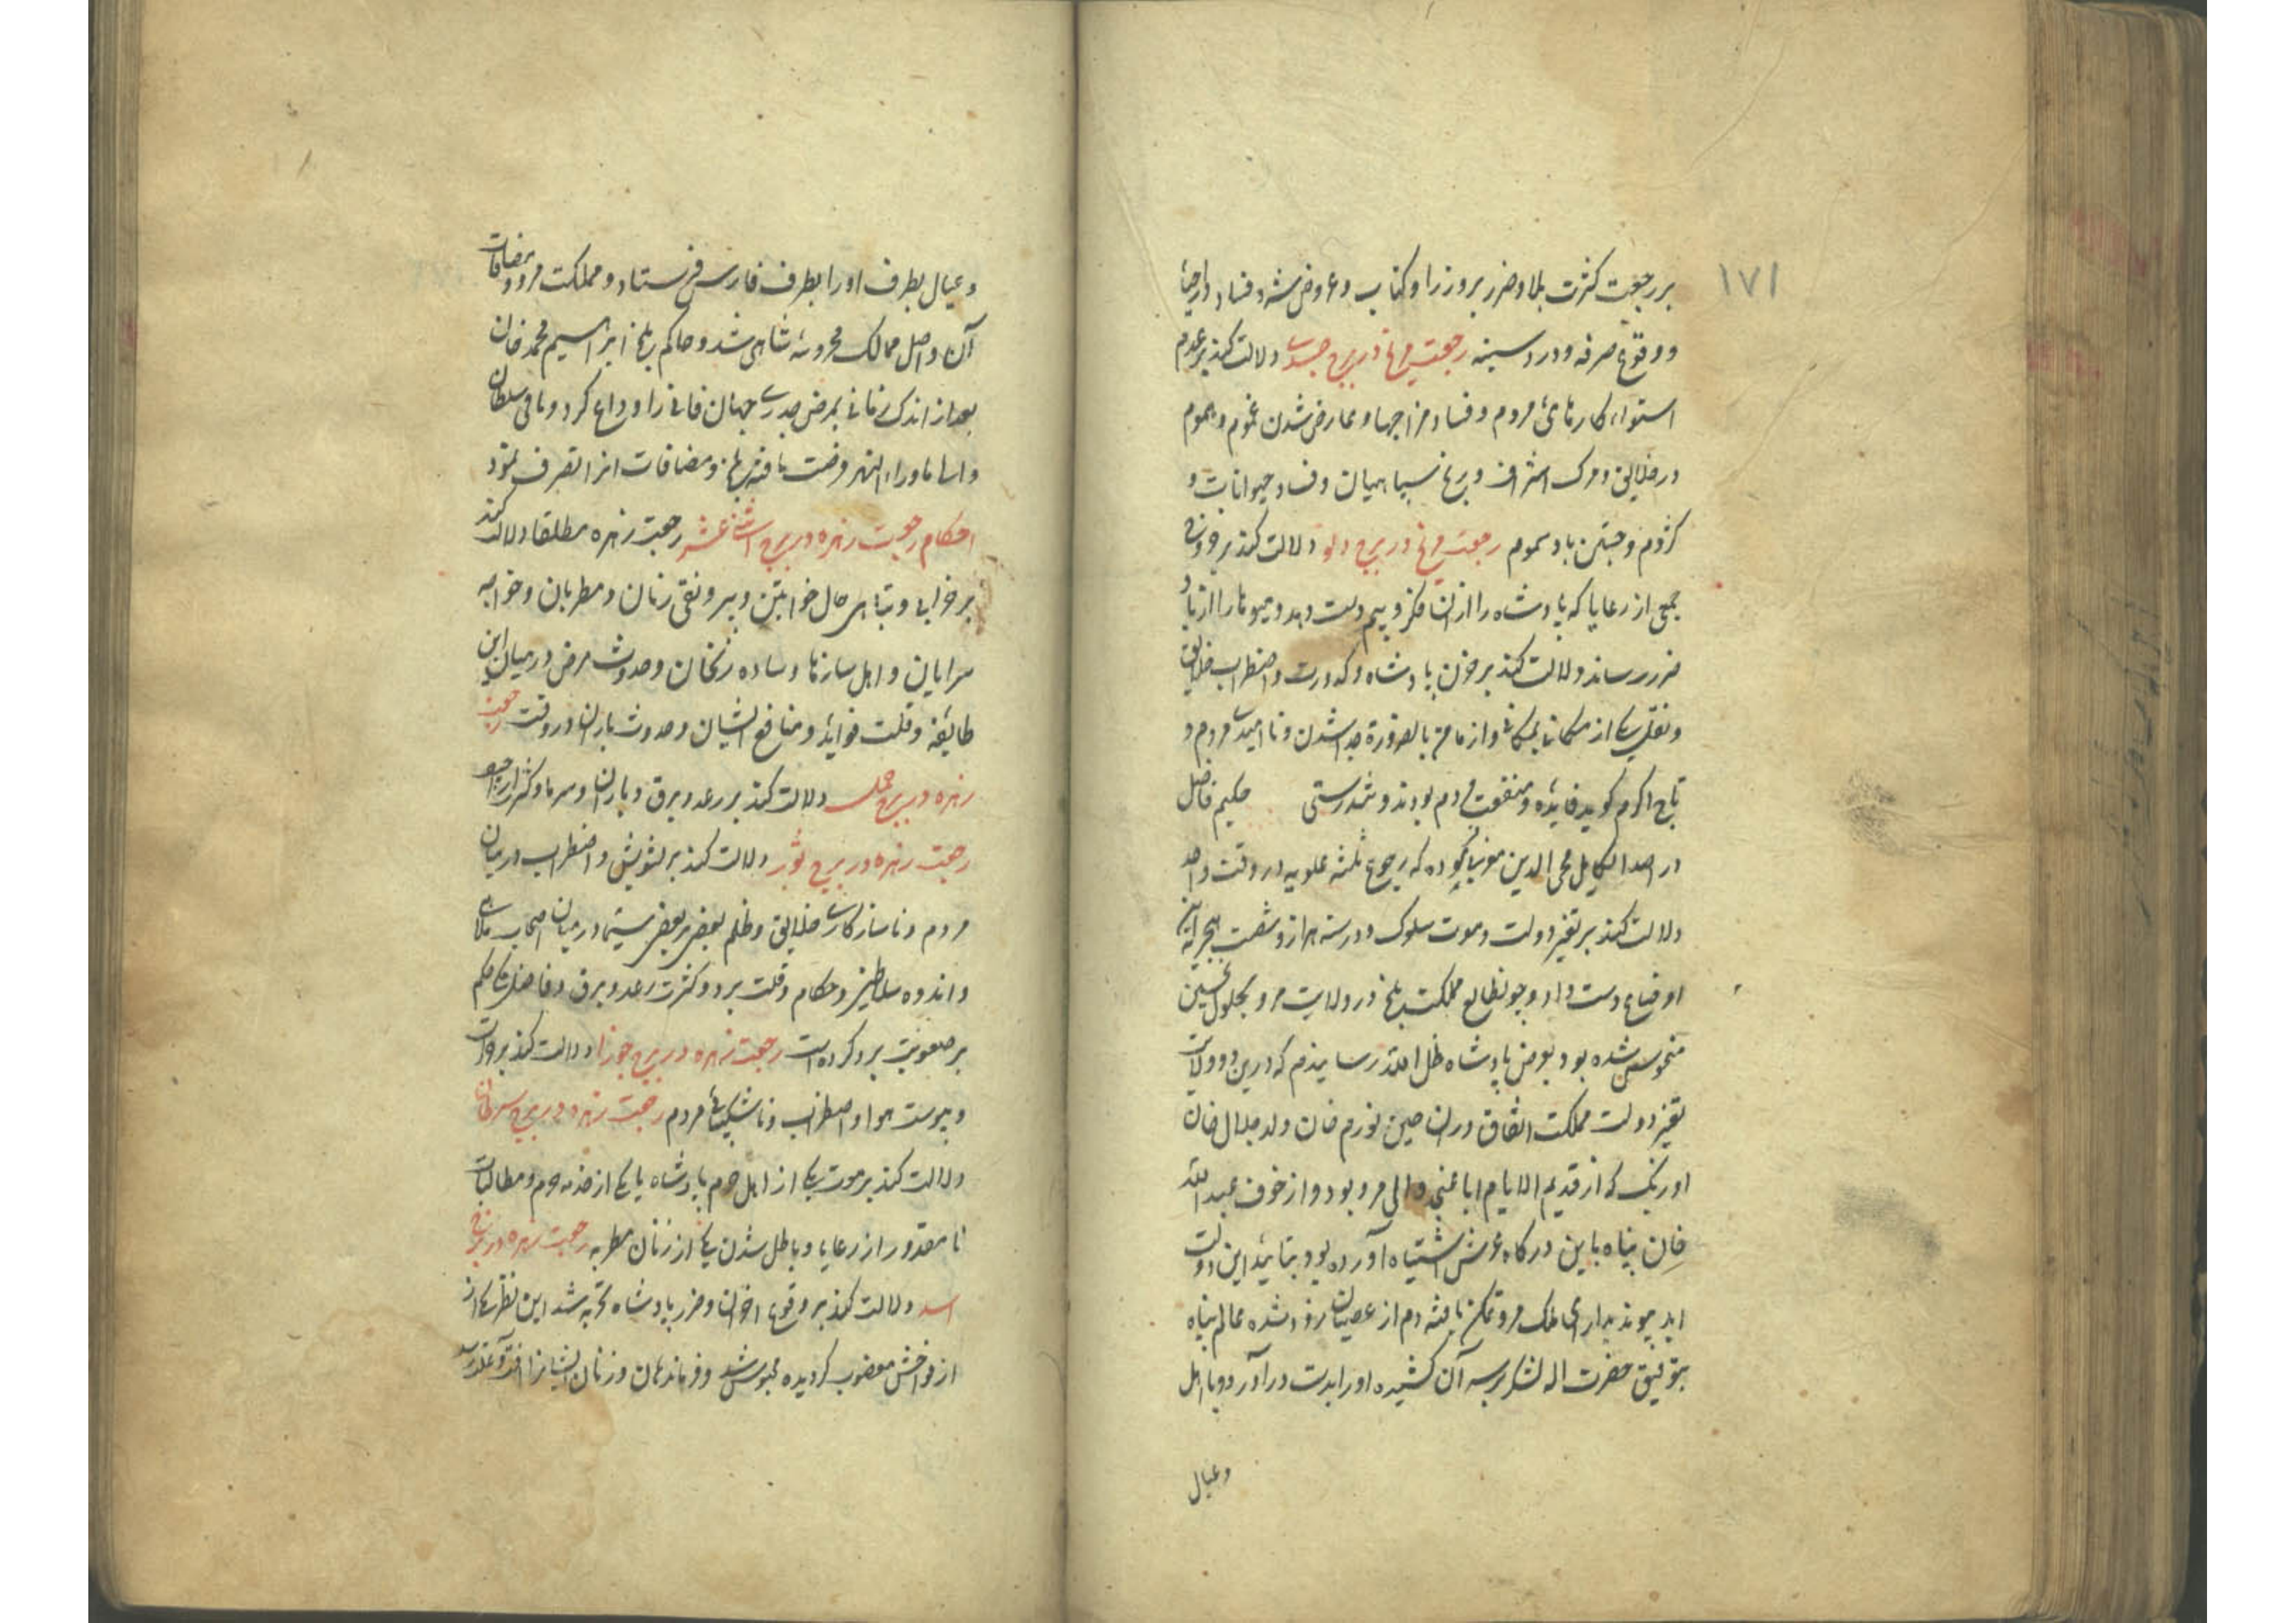 ۱۷۱
بر رجعت کثرت بلا و ضرر بر وزرا و کتاب و عروض شه و فساد
و وقوع صرفه و درد سینه رجعت مریخ در برج جدی دلالت کند بر عدم
استواء کارهای مردم و فساد مزاجها و عارض شدن غموم و هموم
در خلایق و مرک اشراف و برخ سپاهیان و فساد حیوانات و
کژدم و جستن باد سموم رجعت مریخ در برج دلو دلالت کند بر
جمعی از رعایا که پادشاه را ازان فکر و بیم دست دهد و میوها را از باد
ضرر رساند و دلالت کند بر حزن پادشاه و کدورت و اضطراب خلایق
و نقل یکی از مکانی بمکانی و از مامن بالضرورة جدا شدن و ناامیدی مردم و
تاج اکرم کوید فایده و منفعت مردم بود و تندرستی حکیم فاضل
در اصدا لکامل محی الدین مغربی که رجوع ثلثه علویه در وقت واحد
دلالت کند بر تغیر دولت و موت ملوک و در سنه هزار و شصت هجریه این
اوضاع دست داد و چو طالع مملکت بلخ و ولایت مرو بحلول نحسین
منحوس شده بود بعرض پادشاه ظل الله رسانیدم که درین دو ولایت
تغیر دولت مملکت اتفاق دران حین نورم خان ولد جلال خان
اوزبک که از قدیم الایام اباعنجد والی مرو بود و از خوف عبد الله
خان پناه باین درکاه عرش اشتباه آورده بود بتایید این دولت
ابد پیوند بدارای ملک مرو تمکن یافته دم از عصیان زد شاه عالم پناه
بتوفیق حضرت اله لشکر بر سر آن کشیده او را بدست در آورد و با اهل
و عیال
و عیال بطرف او را بطرف فارس فرستاد و مملکت مرو و مضافات
آن داخل ممالک محروسه شاهی شد و حاکم بلخ ابراهیم محمد خان
بعد از اندک زمانی بمرض جدری جهان فانی را وداع کرد و باقی سلطان
والی ماوراء النهر فرصت یافته بلخ و مضافات انرا تصرف نمود
احکام رجعت زهره در بروج اثنی عشر رجعت زهره مطلقا دلالت کند
بر خرابی و تباهی حال خواتین و بیرونقی زنان و مطربان و خواجه
سرایان و اهل سازها و ساده زنخان و حدوث مرض در میان این
طایفه و قلت فواید و منافع ایشان و حدوث باران در وقت رجعت
زهره در برج حمل دلالت کند بر رعد و برق و باران و سرما و کثرت
رجعت زهره در برج ثور دلالت کند بر تشویش و اضطراب در میان
مردم و ناسازکاری خلایق و ظلم بعضی بر بعضی سیما در میان اصحاب ملاهی
و اندوه سلاطین و حکام و قلت برد و کثرت رعد و برق و فاضلی حکم
بر صعوبت برد کرده است رجعت زهره در برج جوزا دلالت کند بر
و یبوست هوا و اضطراب و ناشکیبائی مردم رجعت زهره در برج سرطان
دلالت کند بر موت یکی از اهل حرم پادشاه یا یکی از خدمه حرم و مطالبات
نامقدور از رعایا و باطل شدن یکی از زنان مطربه رجعت زهره در برج
اسد دلالت کند بر وقوع احزان و ضرر پادشاه تجربه شد این نظر یکی از
از خواص مغضوب کردیده محبوس شد و فرزندان و زنان ایشانرا